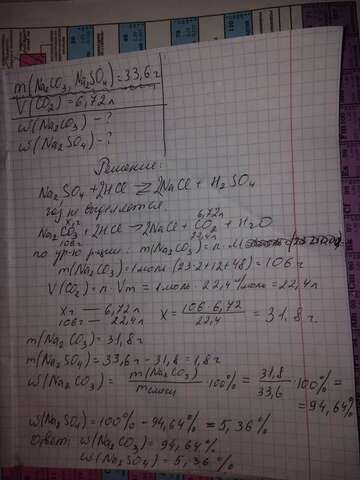 m(Na₂CO₃, Na₂SO₄)=33,6г
V(CO₂)=6,72л
ω(Na₂CO₃)-?
ω(Na₂SO₄)-?
Решение:
Na₂SO₄+2HCl ⇄ 2NaCl + H₂SO₄
газ не выделяется.
xг 6,72л
Na₂CO₃+2HCl → 2NaCl + CO₂ + H₂O
106г 22,4л
по ур-ю р-ции: m(Na₂CO₃)=n·M
m(Na₂CO₃)=1моль·(23·2+12+48)=106г
V(CO₂)=n·Vm = 1моль·22,4л/моль=22,4л
xг — 6,72л
106г — 22,4л
x=106·6,72/22,4=31,8г.
m(Na₂CO₃)=31,8г
m(Na₂SO₄)=33,6г-31,8=1,8г
ω(Na₂CO₃)=m(Na₂CO₃)/mсмеси·100%=31,8/33,6·100%=
=94,64%
ω(Na₂SO₄)=100%-94,64%=5,36%
Ответ: ω(Na₂CO₃)=94,64%
ω(Na₂SO₄)=5,36%